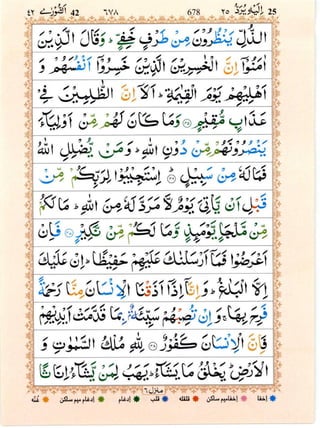 اَلشُّوْرٰى ٤٢ 42 ٦٧٨ 678 اِلَيْهِ يُرَدُّ ٢٥ 25
الذُّلِّ يَنْظُرُوْنَ مِنْ طَرْفٍ خَفِيٍّ ؕ وَقَالَ الَّذِيْنَ
اٰمَنُوْۤا اِنَّ الْخٰسِرِيْنَ الَّذِيْنَ خَسِرُوْۤا اَنْفُسَهُمْ وَ
اَهْلِيْهِمْ يَوْمَ الْقِيٰمَةِ ؕ اَلَاۤ اِنَّ الظّٰلِمِيْنَ فِيْ
عَذَابٍ مُّقِيْمٍ ﴿٤٥﴾ وَمَا كَانَ لَهُمْ مِّنْ اَوْلِيَآءَ
يَنْصُرُوْنَهُمْ مِّنْ دُوْنِ اللّٰهِ ؕ وَمَنْ يُّضْلِلِ اللّٰهُ
فَمَا لَهٗ مِنْ سَبِيْلٍ ﴿٤٦﴾ اِسْتَجِيْبُوْا لِرَبِّكُمْ مِّنْ
قَبْلِ اَنْ يَّاْتِيَ يَوْمٌ لَّا مَرَدَّ لَهٗ مِنَ اللّٰهِ ؕ مَا لَكُمْ
مِّنْ مَّلْجَاٍ يَّوْمَئِذٍ وَّمَا لَكُمْ مِّنْ نَّكِيْرٍ ﴿٤٧﴾ فَاِنْ
اَعْرَضُوْا فَمَاۤ اَرْسَلْنٰكَ عَلَيْهِمْ حَفِيْظًا ؕ اِنْ عَلَيْكَ
اِلَّا الْبَلٰغُ ؕ وَاِنَّاۤ اِذَاۤ اَذَقْنَا الْاِنْسَانَ مِنَّا رَحْمَةً
فَرِحَ بِهَا ۚ وَاِنْ تُصِبْهُمْ سَيِّئَةٌۢ بِمَا قَدَّمَتْ اَيْدِيْهِمْ
فَاِنَّ الْاِنْسَانَ كَفُوْرٌ ﴿٤٨﴾ لِلّٰهِ مُلْكُ السَّمٰوٰتِ وَ
الْاَرْضِ ؕ يَخْلُقُ مَا يَشَآءُ ؕ يَهَبُ لِمَنْ يَّشَآءُ اِنَاثًا
منزل ٦
اخفا اخفا میم ساكن قلقله قلب ادغام ادغام ميم ساكن غنّه